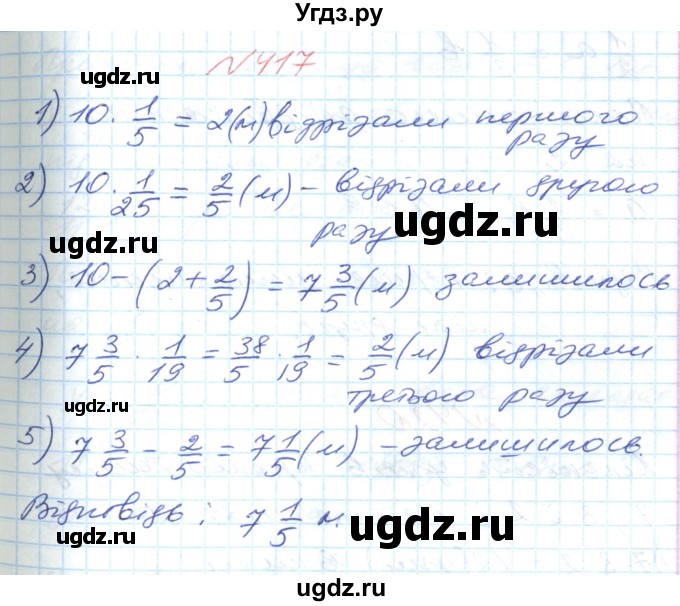 Угдз.ру
№417
ugdz.ru
1) 10 · 1/5 = 2(м) відрізали першого
разу
2) 10 · 1/25 = 2/5 (м) – відрізали другого
разу
ugdz.ru
ugdz.ru
3) 10 – (2 + 2/5) = 7 3/5 (м) залишилось
4) 7 3/5 · 1/19 = 38/5 · 1/19 = 2/5 (м) відрізали
третього разу
ugdz.ru
5) 7 3/5 – 2/5 = 7 1/5 (м) – залишилось.
Відповідь: 7 1/5 м.
ugdz.ru
ugdz.ru
ugdz.ru